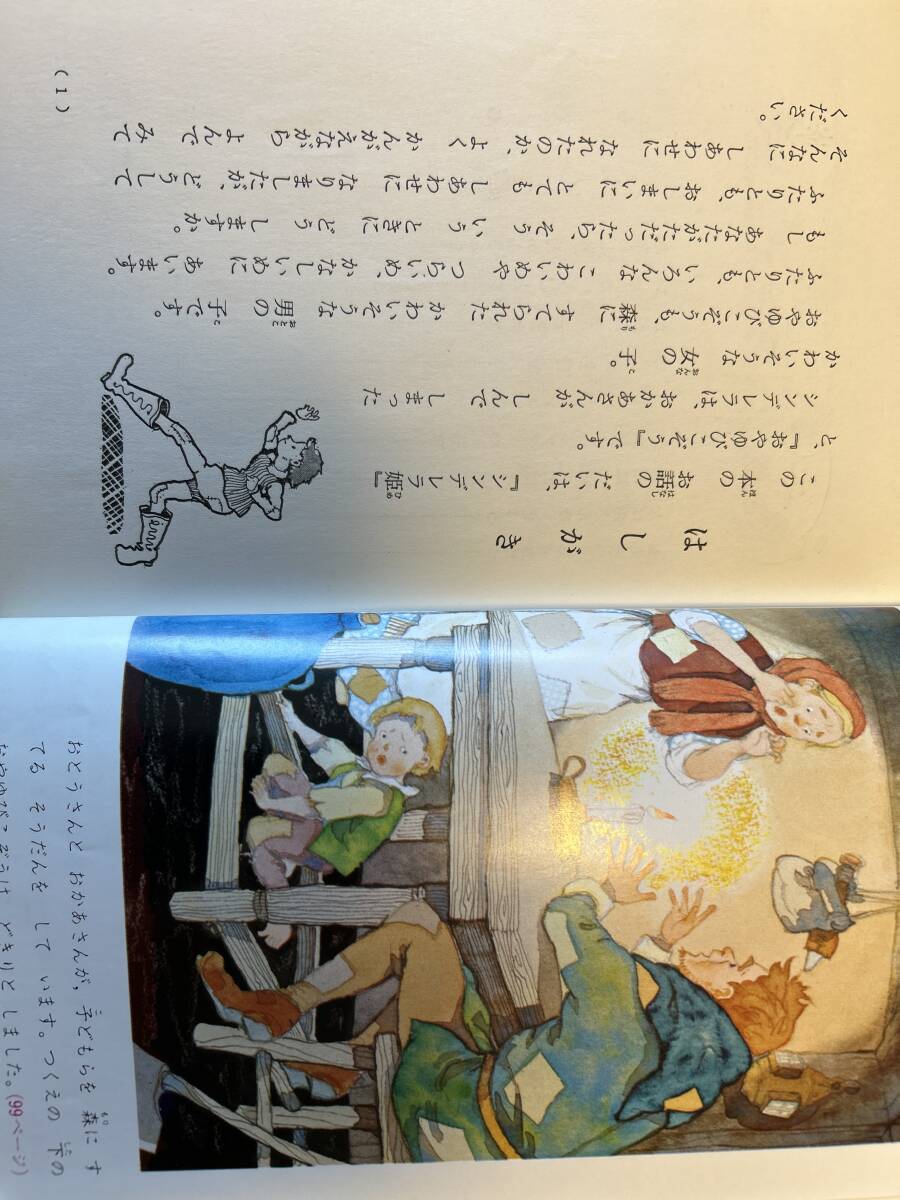 はしがき
この 本の お話の だいは、『シンデレラ姫』
と、『おやゆびこぞう』です。
シンデレラは、おかあさんが しんで しまった
かわいそうな 女の 子。
おやゆびこぞうも、森に すてられた かわいそうな 男の 子です。
ふたりとも、いろんな こわいめや つらいめ、かなしいめに あいます。
もし あなたがただったら、そう いう ときに どう しますか。
ふたりとも、おしまいに とても しあわせに なりましたが、どうして
そんなに しあわせに なれたのか、よく かんがえながら よんで みて
ください。
(1)
おとうさんと おかあさんが、子どもらを 森に す
てる そうだんを して います。つくえの 下の
おやゆびこぞうは どきりと しました。(99ページ)